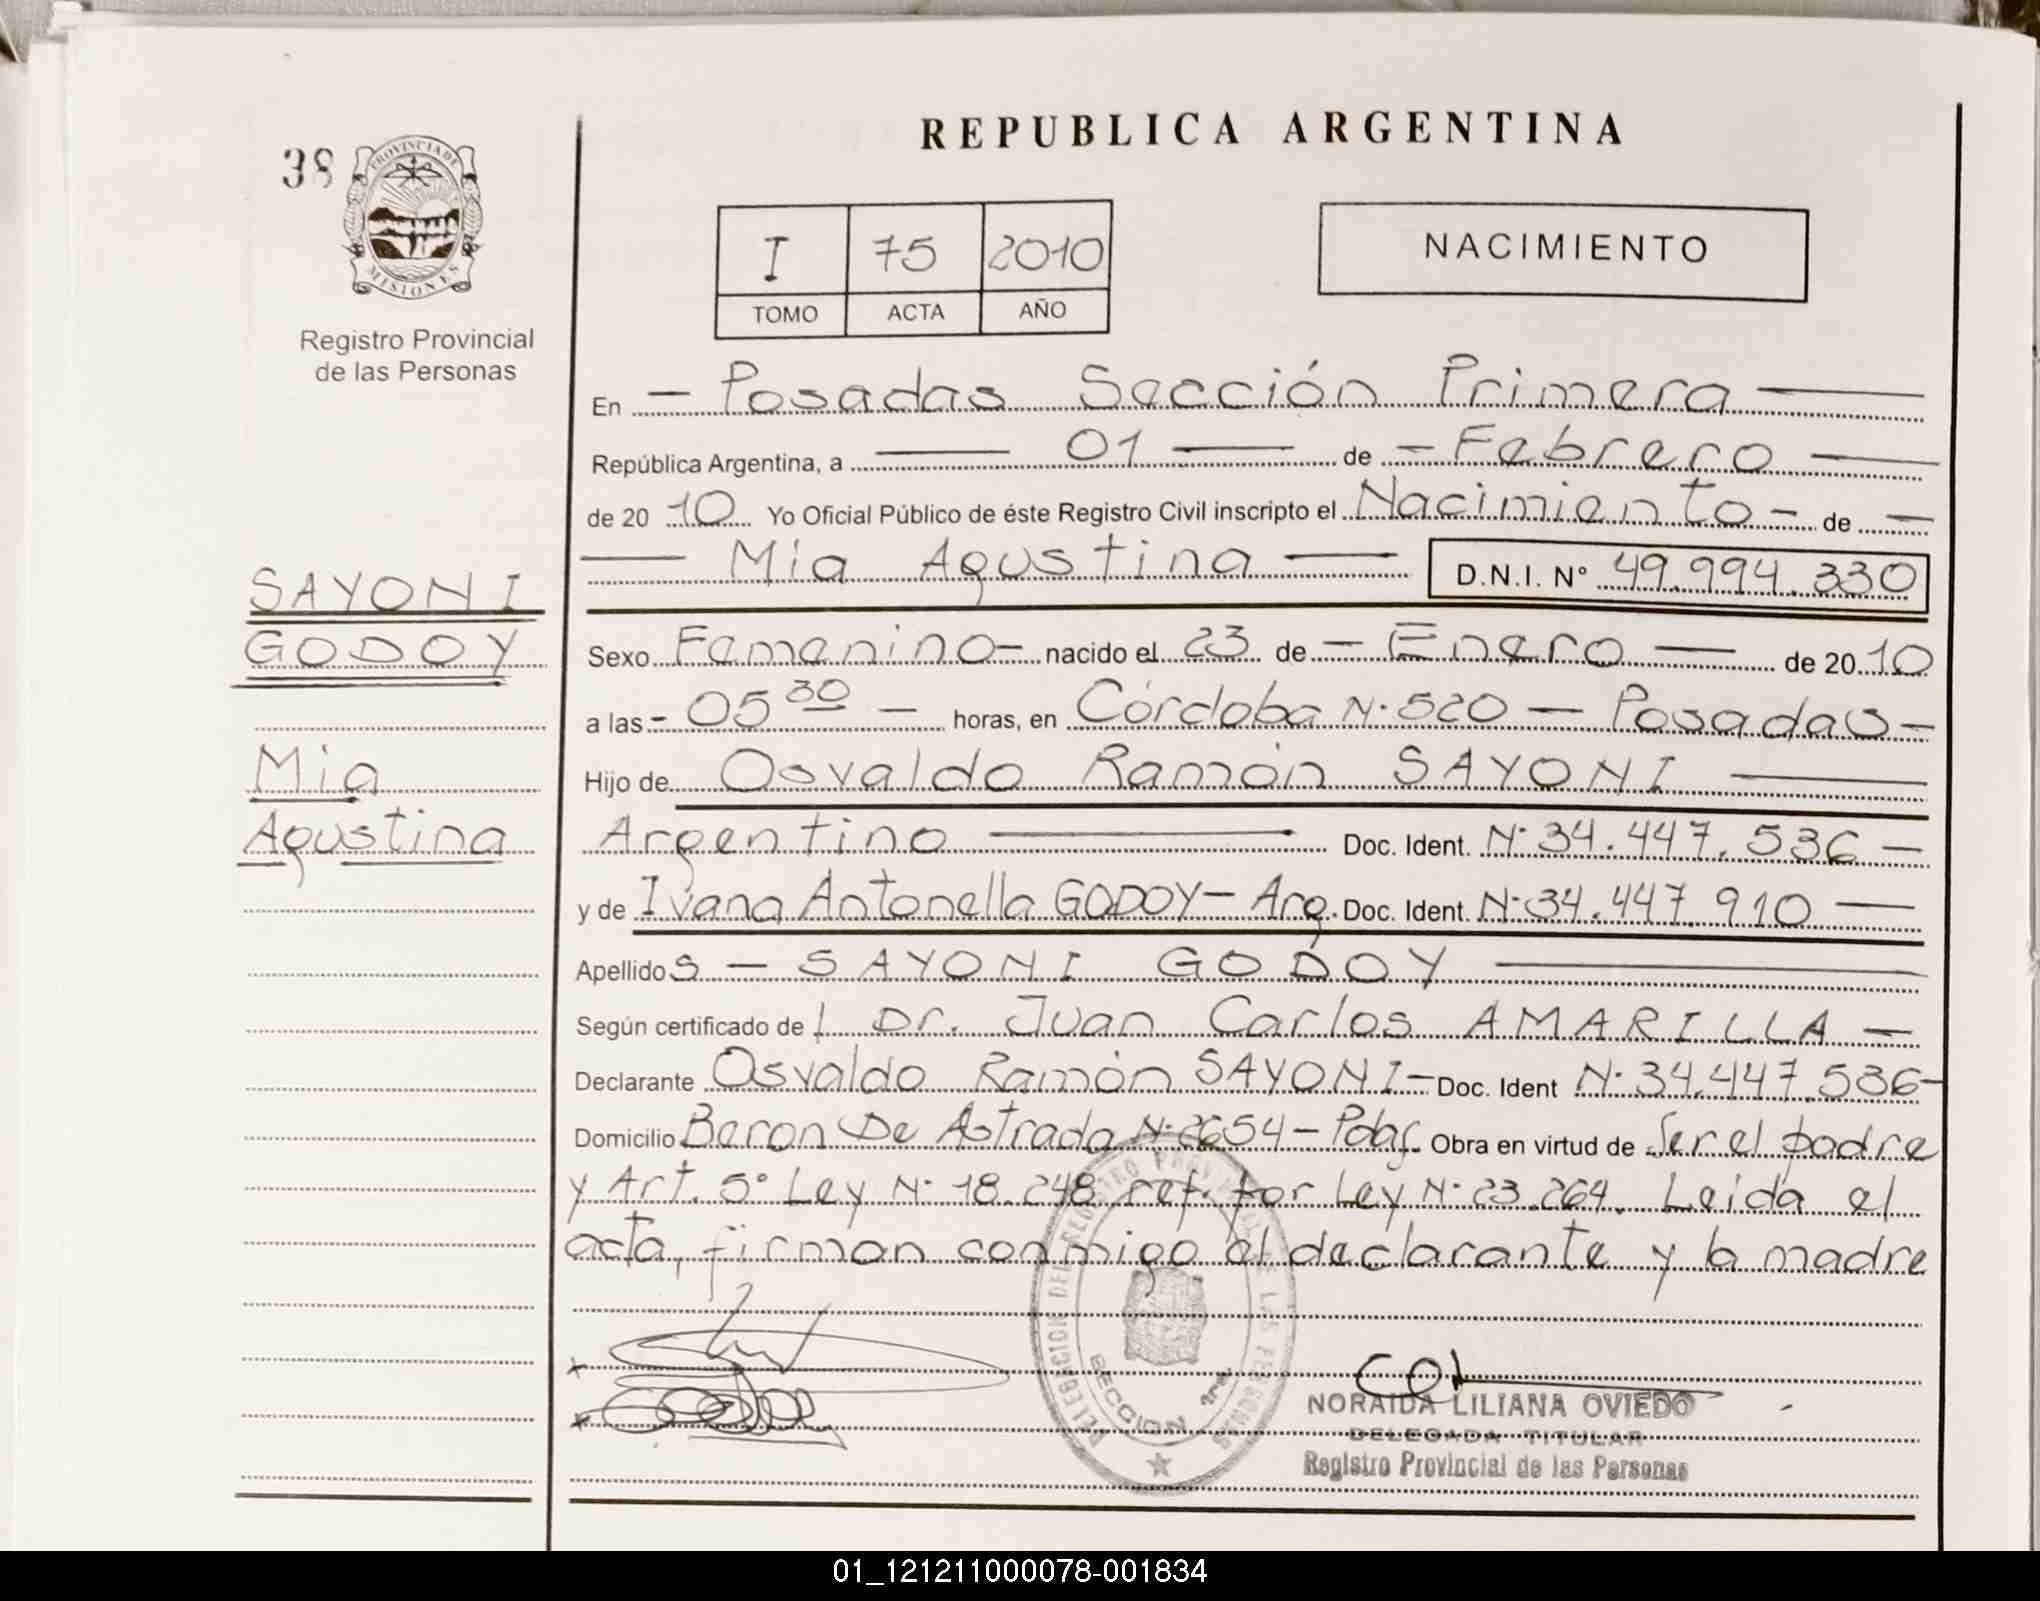 REPUBLICA ARGENTINA
38
PROVINCIA DE
MISIONES
Registro Provincial
de las Personas
I 75 2010
TOMO ACTA AÑO
NACIMIENTO
En - Posadas Sección Primera -
República Argentina, a - 01 - de - Febrero -
de 20 10 Yo Oficial Público de éste Registro Civil inscripto el Nacimiento - de -
- Mia Agustina - D.N.I. Nº 49.994.330
SAYONI
GODOY
Mia
Agustina
Sexo Femenino - nacido el 23 de - Enero - de 20 10
a las - 05 30 - horas, en Córdoba N· 520 - Posadas -
Hijo de Osvaldo Ramón SAYONI -
Argentino - Doc. Ident. N· 34.447.536 -
y de Ivana Antonella GODOY - Arg. Doc. Ident. N· 34.447.910 -
Apellido s - SAYONI GODOY -
Según certificado de l Dr. Juan Carlos AMARILLA -
Declarante Osvaldo Ramón SAYONI - Doc. Ident N· 34.447.536 -
Domicilio Beron De Astrada N· 2654 - Pdas Obra en virtud de Ser el padre
y Art. 5º Ley N· 18.248 ref. por Ley N· 23.264. Leida el
acta, firman conmigo el declarante y la madre
DELEGACION DEL REGISTRO PROVINCIAL DE LAS PERSONAS
SECCION 1ra
NORAIDA LILIANA OVIEDO
DELEGADA TITULAR
Registro Provincial de las Personas
01_121211000078-001834